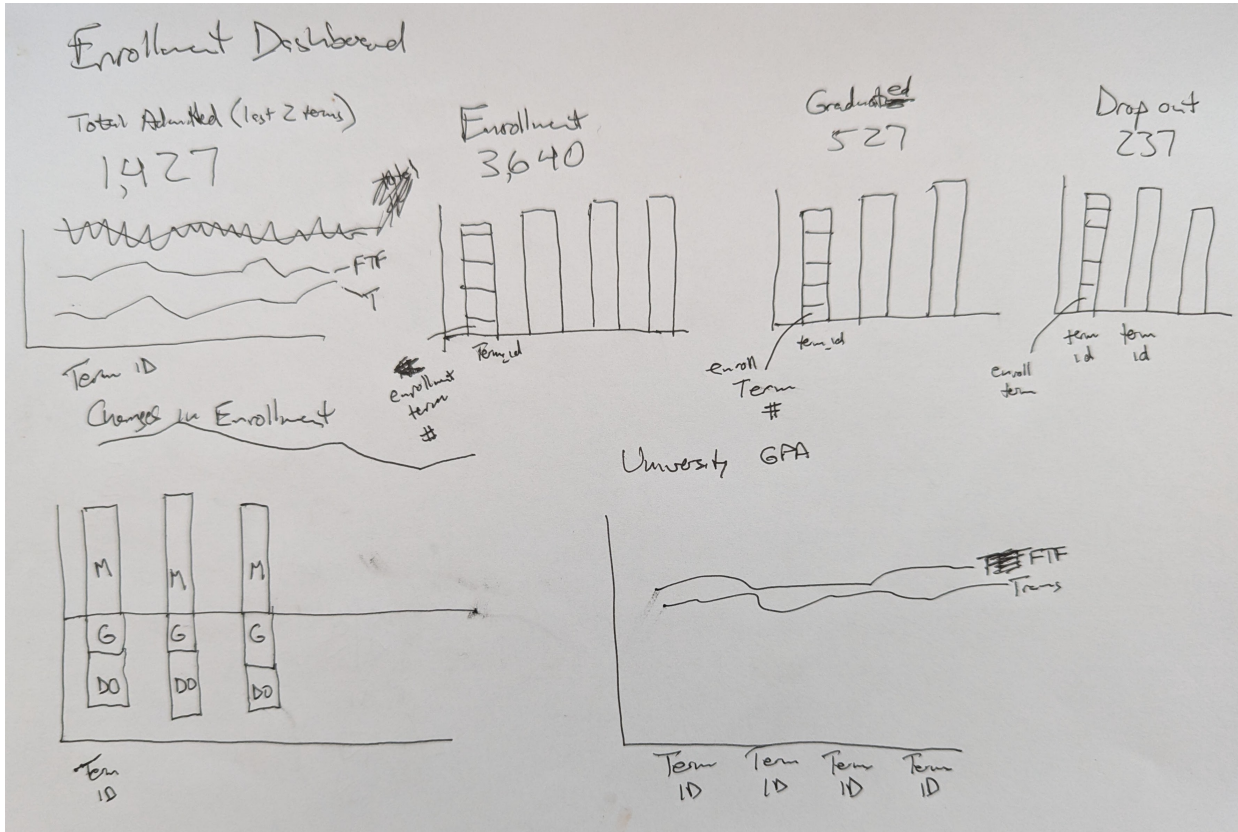 Enrollment Dashboard
Total Admitted (last 2 terms)
1,427
FTF
T
Term ID
Enrollment
3,640
Term_id
enrollment
term
#
Graduated
527
term_id
enroll
Term
#
Drop out
237
term
id
term
id
enroll
term
Changes in Enrollment
M
M
M
G
G
G
DO
DO
DO
Term
ID
University GPA
FTF
Trans
Term
ID
Term
ID
Term
ID
Term
ID